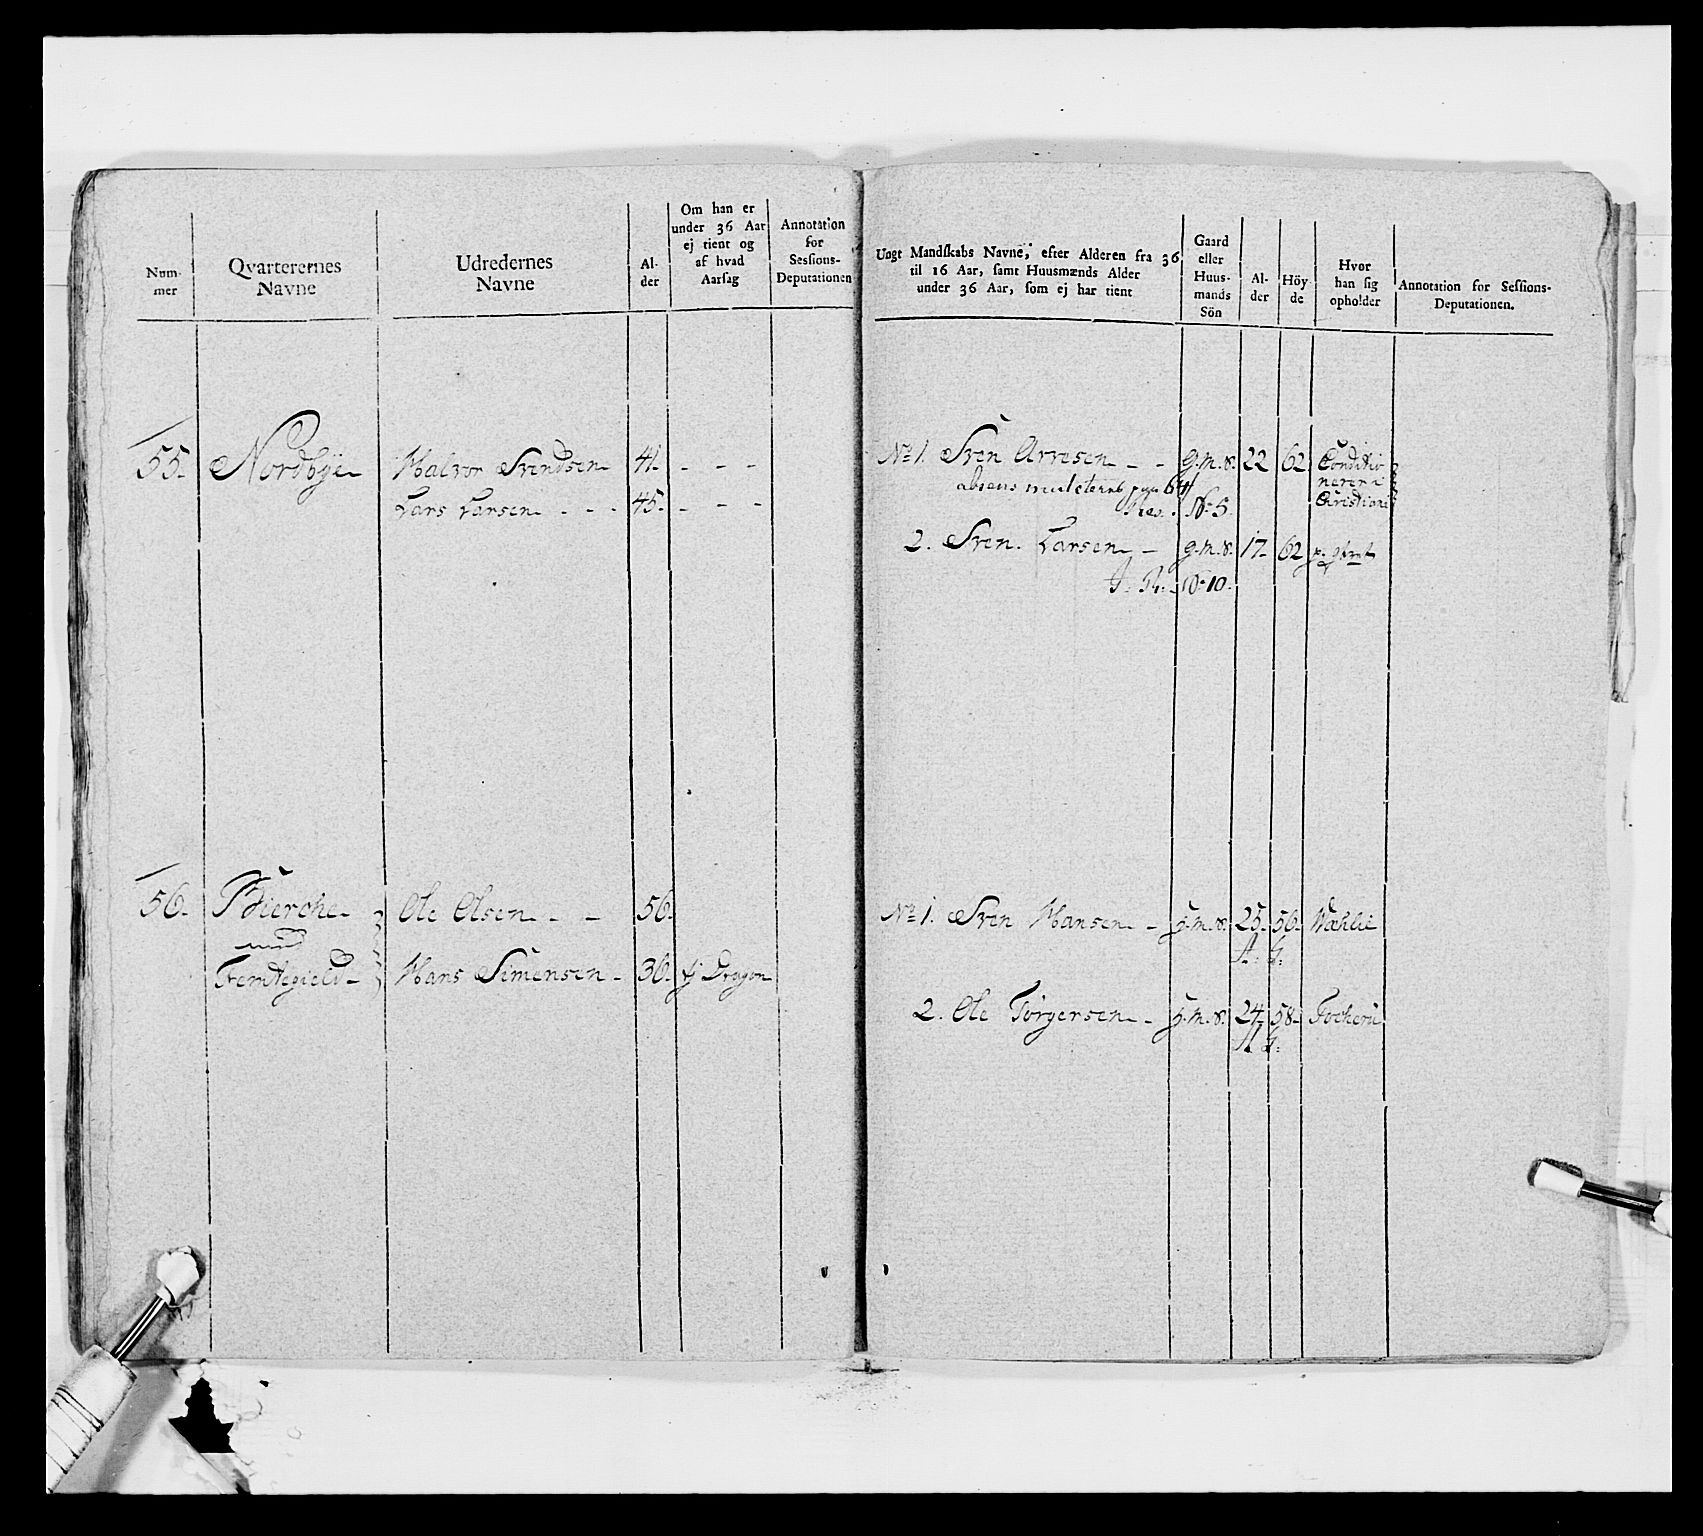 Num-
mer
Qvarterernes
Navne
Udredernes
Navne
Al-
der
Om han er
under 36 Aar
ej tient og
af hvad
Aarsag
Annotation
for
Sessions-
Deputationen
55. Nordbye Halvor Svendsen 41. - - -
Lars Larsen - - - 45. - - -
56. Bierche Ole Olsen - - 56.
med
Hans Simensen - 36. Dragon
Ungt Mandskabs Navne, efter Alderen fra 36
til 16 Aar, samt Huusmænds Alder
under 36 Aar, som ej har tient
Gaard
eller
Huus-
mands
Sön
Al-
der
Höy-
de
Hvor
han sig
opholder
Annotation for Sessions-
Deputationen.
No 1. Sven Arvesen - - g.m.s. 22 62 Conditio
nerer i
absens 64
Christiani
No 5.
2. Sven Larsen - g.m.s. 17. 62
No 10.
No 1. Sven Hansen - h.m.s. 25. 56.
2. Ole Törgersen - h.m.s. 24. 58.